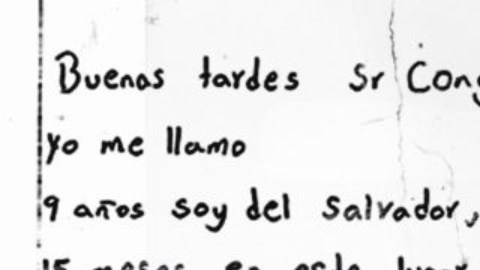 Buenas tardes Sr
yo me llamo
9 años soy del Salvador,
15 meses en este lugar